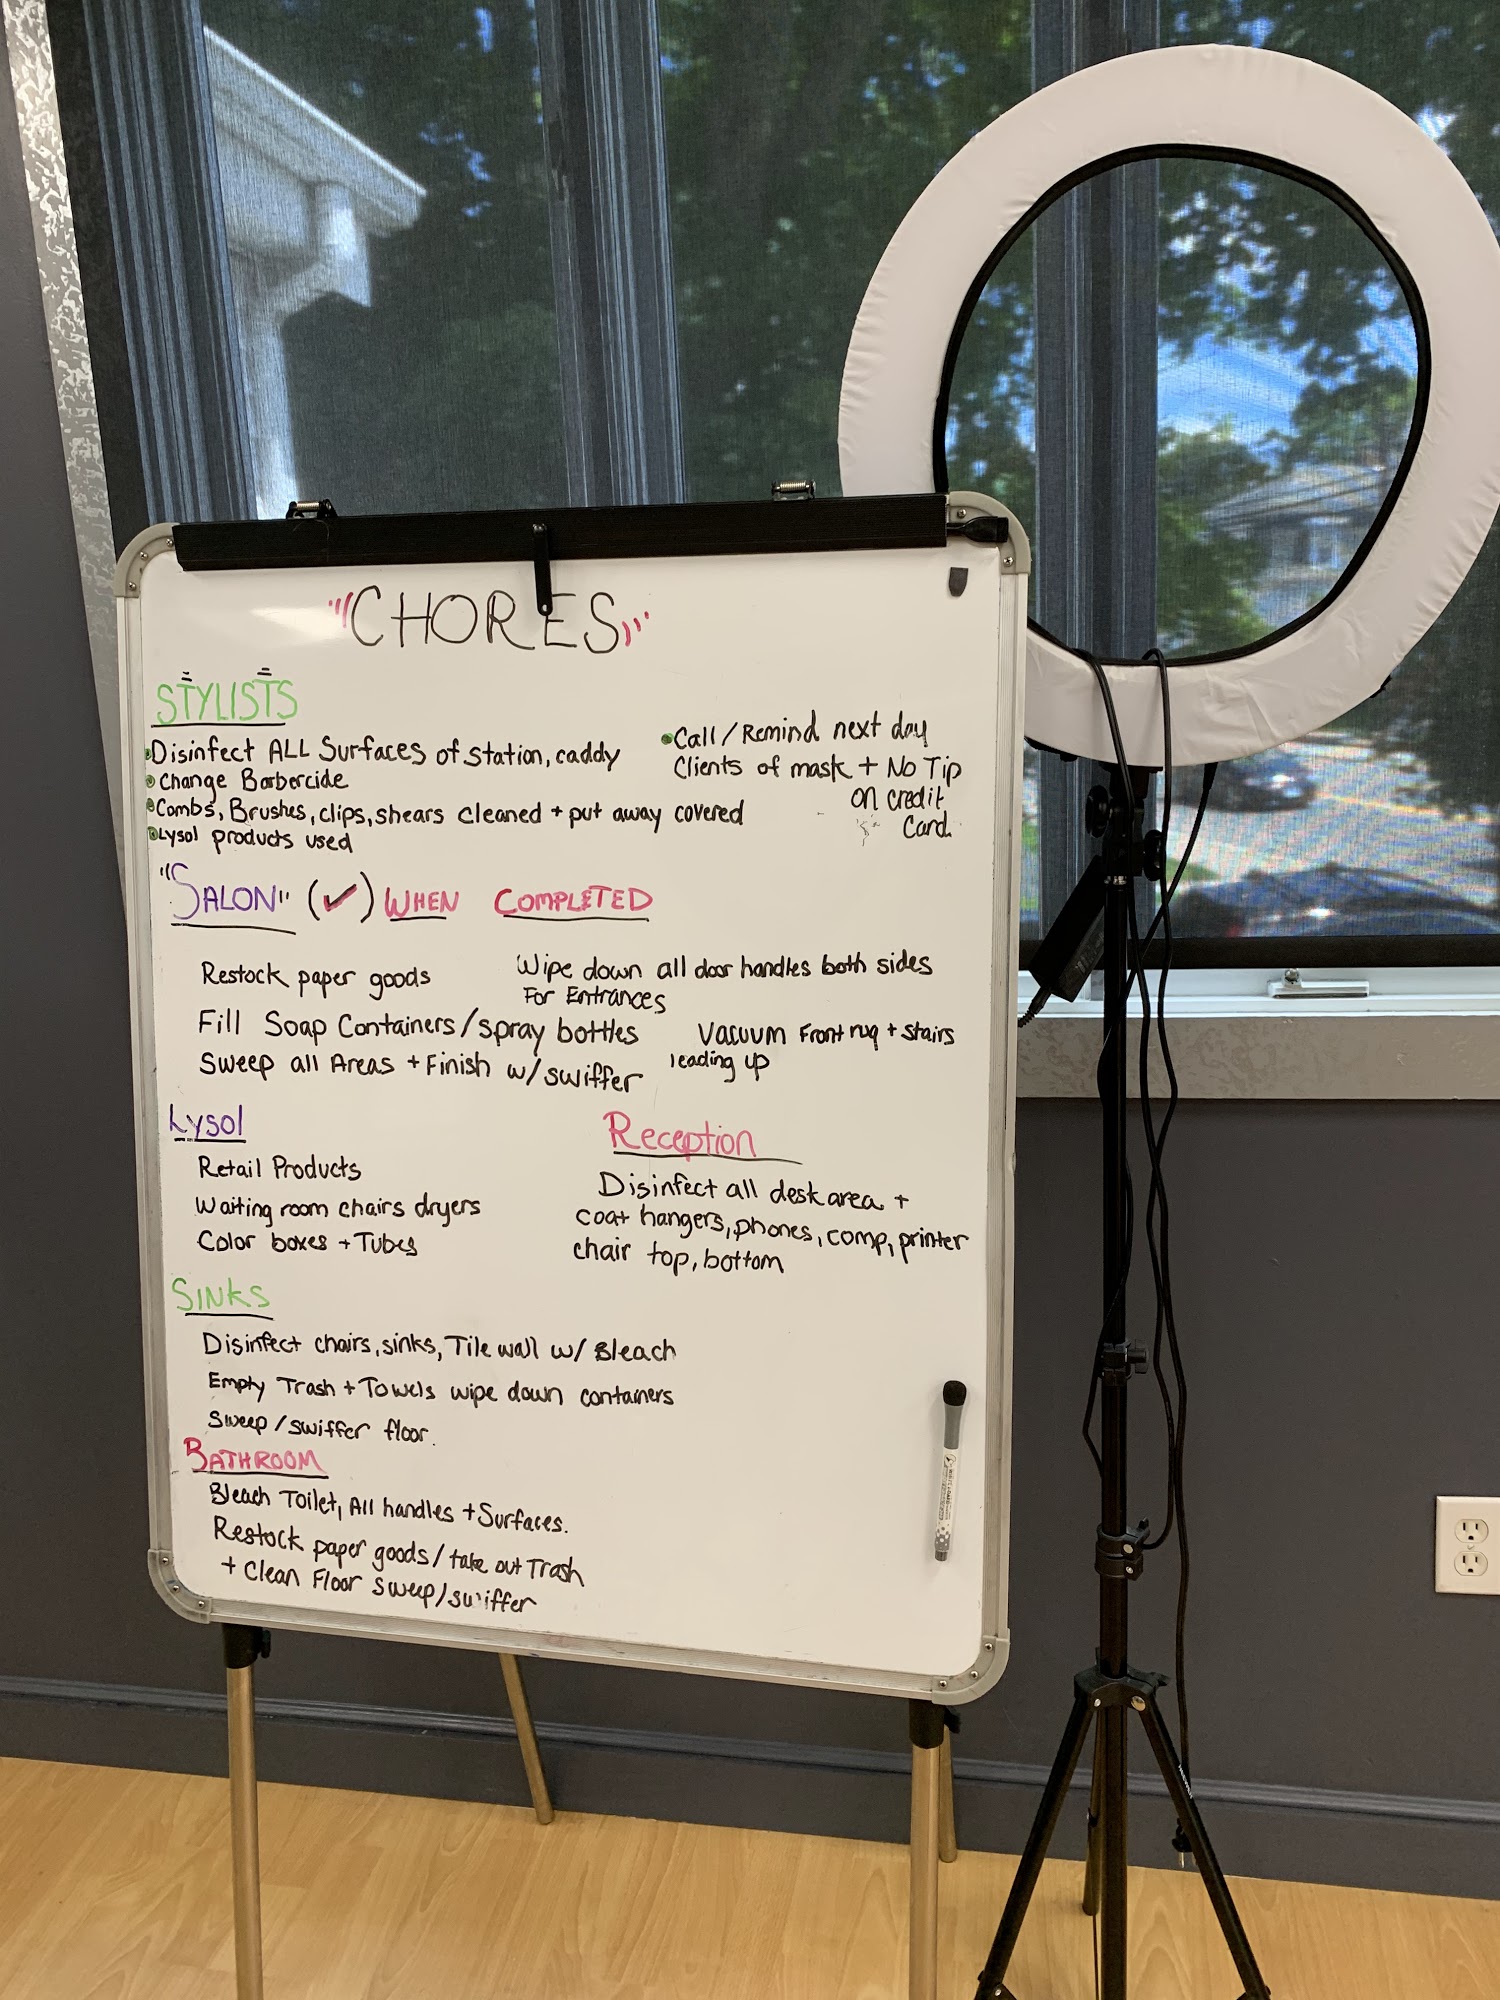 "CHORES"
STYLISTS
Disinfect ALL Surfaces of station, caddy
Change Barbercide
Combs, Brushes, clips, shears cleaned + put away covered
Lysol products used
Call / Remind next day
Clients of mask + No Tip
on credit
Card
"SALON" (✓) WHEN COMPLETED
Restock paper goods
Wipe down all door handles both sides
For Entrances
Fill Soap Containers/spray bottles
Vacuum Front rug + stairs
leading up
Sweep all Areas + Finish w/ swiffer
Lysol
Retail Products
Waiting room chairs dryers
Color boxes + Tubes
Reception
Disinfect all desk area +
coat hangers, phones, comp, printer
chair top, bottom
SINKS
Disinfect chairs, sinks, Tile wall w/ Bleach
Empty Trash + Towels wipe down containers
Sweep / swiffer floor.
BATHROOM
Bleach Toilet, All handles + Surfaces.
Restock paper goods/ take out Trash
+ Clean Floor sweep/swiffer